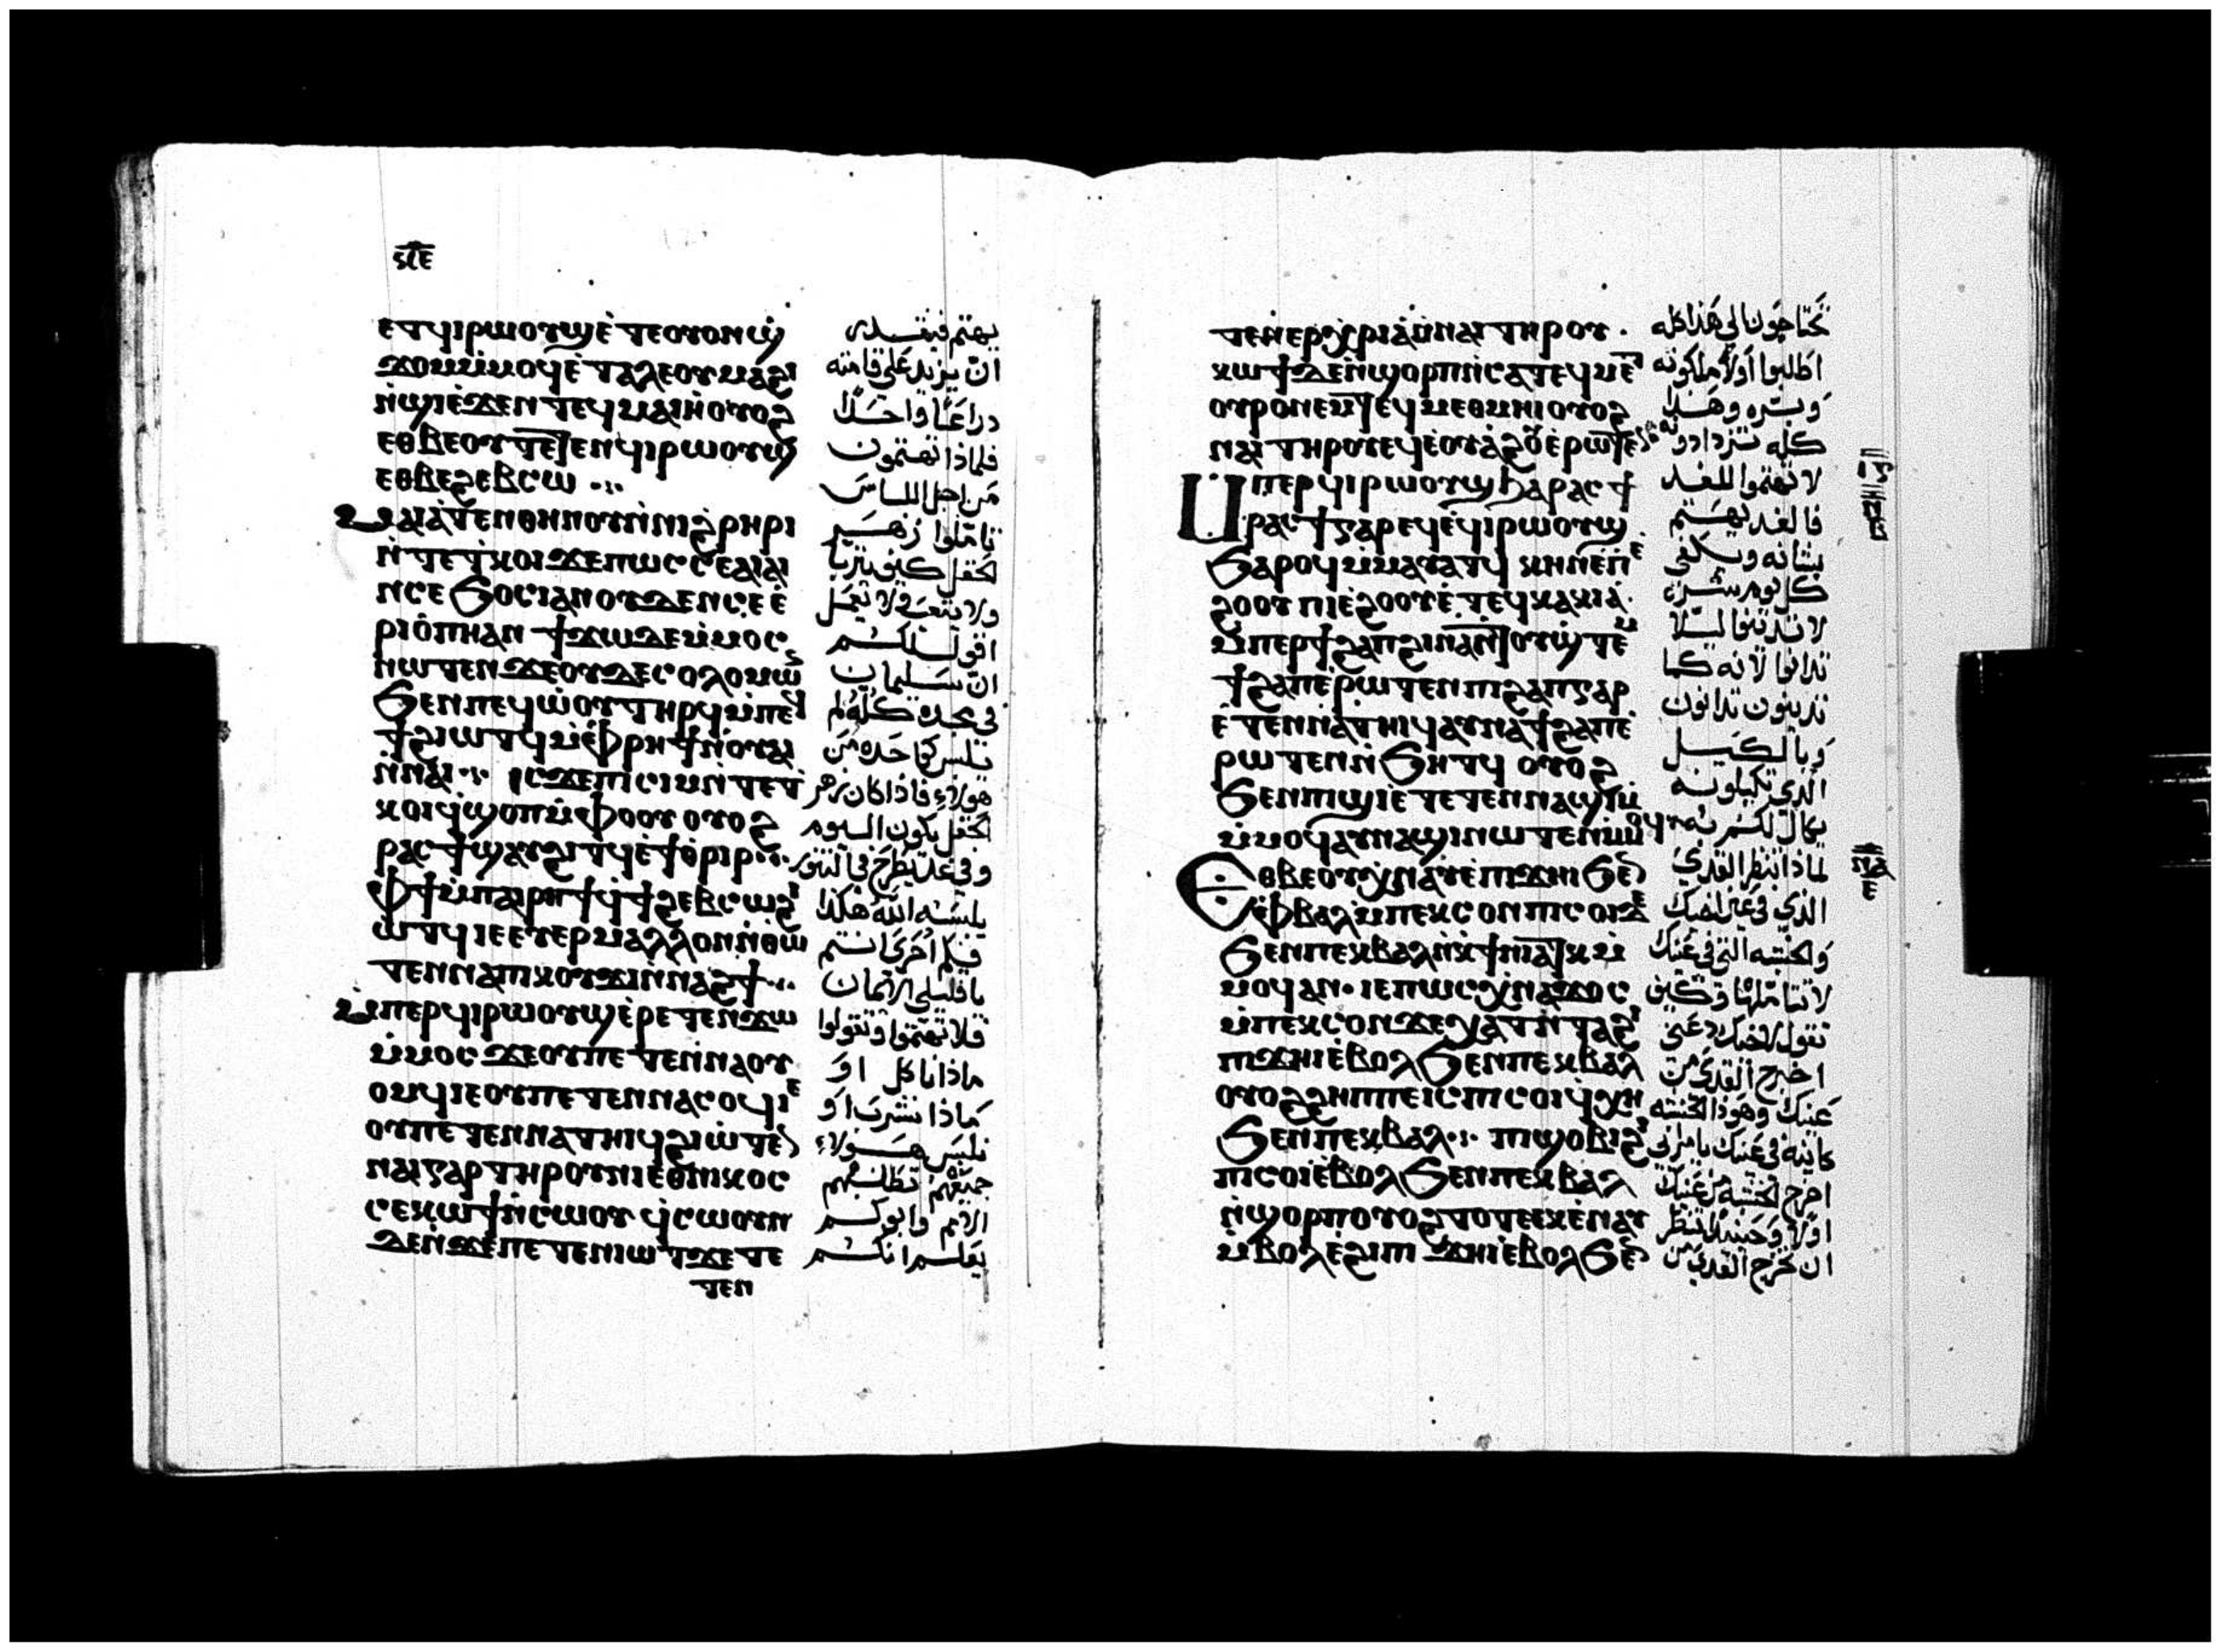 ⲥⲓⲉ
ⲉⲧϥⲓⲣⲱⲟⲩϣⲉ̀ ⲧⲉⲟⲩⲟⲛϣ̀
ϫⲟⲙⲙ̀ⲙⲟϥⲉ̀ ⲧⲁⲗⲉⲟⲩⲙⲁϩⲓ
ⲛ̀ϣⲓⲉ̀ϫⲉⲛ ⲧⲉϥⲙⲁⲓⲏⲟⲩⲟϩ
ⲉⲑⲃⲉⲟⲩ ⲧⲉⲧⲉⲛϥⲓⲣⲱⲟⲩϣ
ⲉⲑⲃⲉϩⲉⲃⲥⲱ
ⲙⲁⲓⲁ̀ⲧⲉⲛⲑⲏⲛⲟⲩⲛ̀ⲛⲓϩⲣⲏⲣⲓ
ⲛ̀ⲧⲉⲧ̀ⲕⲟⲓϫⲉⲡⲱⲥ ⲥⲉⲁⲓⲁⲓ
ⲛⲥⲉϧⲟⲥⲓⲁⲛⲟⲩⲇⲉⲛⲥⲉⲉ̀
ⲣⲓⲟ̀ⲡⲏⲁⲛ ϯϫⲱⲇⲉⲙ̀ⲙⲟⲥ
ⲛⲱⲧⲉⲛ ϫⲉⲟⲩⲇⲉⲥⲟⲗⲟⲙⲱ
ϧⲉⲛⲡⲉϥⲱ̀ⲟⲩ ⲧⲏⲣϥⲙ̀ⲡⲉϥ
ϯϩⲓⲱⲧϥⲙ̀ⲫⲣⲏϯⲛ̀ⲟⲩⲁⲓ
ⲛ̀ⲛⲁⲓ ⲓⲥϫⲉⲡⲓⲥⲓⲙⲛ̀ⲧⲉⲧ̀
ⲕⲟⲓϥ̀ϣⲟⲡⲙ̀ⲫⲟⲟⲩ ⲟⲩⲟϩ
ⲣⲁⲥϯϣⲁⲩϩⲓⲧϥⲉ̀ϯⲑⲣⲓⲣ
ⲫϯⲙ̀ⲡⲁⲓⲣⲏϯϥ̀ϯϩⲉⲃⲥⲱϩⲓ
ⲱⲧϥⲓⲉⲉⲧⲉⲣⲙⲁⲗⲗⲟⲛⲛ̀ⲑⲱ
ⲧⲉⲛⲛⲁⲡⲓⲕⲟⲩϫⲓⲛ̀ⲛⲁϩϯ
ⲙ̀ⲡⲉⲣϥⲓⲣⲱⲟⲩϣⲉ̀ⲣⲉ ⲧⲉⲛϫⲱ
ⲙ̀ⲙⲟⲥ ϫⲉⲟⲩⲡⲉ ⲧⲉⲛⲛⲁⲟⲩ
ⲟⲙϥⲓⲉⲟⲩⲡⲉ ⲧⲉⲛⲛⲁⲥⲟϥⲓⲉ
ⲟⲩⲡⲉ ⲧⲉⲛⲛⲁⲧⲏⲓϥϩⲓⲱⲧⲉⲛ
ⲛⲁⲓⲅⲁⲣ ⲧⲏⲣⲟⲩⲛⲓⲉⲑⲛⲓⲕⲟⲥ
ⲥⲉⲕⲱϯⲛ̀ⲥⲱⲟⲩ ϥ̀ⲥⲱⲟⲩⲛ
ϫⲉⲛ̀ϫⲉⲡⲉ ⲧⲉⲛⲓⲱⲧϫⲉ ⲧⲉ
ⲧⲉⲛ
يهتم فيقدر
ان يزيد على قامته
ذراعًا واحدًا
فلماذا تهتمون
من اجل اللباس
تاملوا زهر
الحقل كيف يتربا
ولا يتعب ولا يعمل
اقول لكم
ان سليمان
في مجده كله لم
يلبس كاحده من
هولاء فاذا كان زهر
الحقل يكون اليوم
وفي غد يطرح في التنور
يلبسه الله هكذا
فكم احرى انتم
يا قليلي الايمان
فلا تهتموا وتقولوا
ماذا ناكل او
ماذا نشرب او
نلبس هولاء
جميعهم تطلبهم
الامم وابوكم
يعلم انكم
ⲧⲉⲛⲉⲣⲭⲣⲓⲁⲛ̀ⲛⲁⲓ ⲧⲏⲣⲟⲩ
ⲕⲱϯϫⲉⲛ̀ϣⲟⲣⲡⲛ̀ⲥⲁⲧⲉϥⲙⲉ
ⲟⲩⲣⲟⲛⲉⲙⲧⲉϥⲙⲉⲑⲙⲏⲓⲟⲩⲟϩ
ⲛⲁⲓ ⲧⲏⲣⲟⲩⲉϥⲉ̀ⲟⲩⲁϩⲟⲩⲉ̀ⲣⲱⲧⲉⲛ
ⲙⲡⲉⲣϥⲓⲣⲱⲟⲩϣϧⲁⲣⲁⲥϯ
ⲣⲁⲥϯⲅⲁⲣⲉϥⲉ̀ϥⲓⲣⲱⲟⲩϣ
ϧⲁⲣⲟϥⲙ̀ⲙⲁⲩⲁⲧϥ ⲕⲏⲛⲉⲡⲓⲉ̀
ϩⲟⲟⲩ ⲡⲓⲉ̀ϩⲟⲟⲩⲉ̀ ⲧⲉϥⲕⲁⲕⲓⲁ
ⲙ̀ⲡⲉⲣϯϩⲁⲡϩⲓⲛⲁⲛ̀ⲧⲟⲩϣ̀ⲧⲉⲙ
ϯϩⲁⲡⲉ̀ⲣⲱⲧⲉⲛ ⲡⲓϩⲁⲡⲅⲁⲣ
ⲉ̀ⲧⲉⲛⲛⲁⲧⲏⲓϥⲁⲩⲛⲁϯϩⲁⲡⲉ̀
ⲣⲱⲧⲉⲛⲛ̀ϧⲏⲧϥ ⲟⲩⲟϩ
ϧⲉⲛⲡⲓϣⲓⲉ̀ⲧⲉⲧⲉⲛⲛⲁϣⲓⲙ̀
ⲙ̀ⲙⲟϥⲁⲩⲛⲁϣⲓⲛⲱⲧⲉⲛⲙ̀ⲙⲟϥ
ⲉⲑⲃⲉⲟⲩⲭ̀ⲛⲁⲩⲉ̀ⲡⲓϫⲏⲓϧⲉⲛ
ⲫ̀ⲃⲁⲗⲙ̀ⲡⲉⲕⲥⲟⲛⲡⲓⲥⲟⲓⲇⲉ
ϧⲉⲛⲡⲉⲕⲃⲁⲗⲛ̀ⲕ̀ϯⲛⲓⲁⲧⲕⲙ̀
ⲙⲟϥⲁⲛ ⲓⲉⲡⲱⲥⲭ̀ⲛⲁϫⲟⲥ
ⲙ̀ⲡⲉⲕⲥⲟⲛϫⲉⲭⲁⲧⲛ̀ⲧⲁϩⲓ
ⲡⲓϫⲏⲓⲉ̀ⲃⲟⲗϧⲉⲛⲡⲉⲕⲃⲁⲗ
ⲟⲩⲟϩϩⲏⲡⲡⲉⲓⲥⲡⲓⲥⲟⲓϥ̀ⲭⲏ
ϧⲉⲛⲡⲉⲕⲃⲁⲗ ⲡⲓϣⲟⲃⲓϩⲓ
ⲡⲓⲥⲟⲓⲉ̀ⲃⲟⲗϧⲉⲛⲡⲉⲕⲃⲁⲗ
ⲛ̀ϣⲟⲣⲡⲟⲩⲟϩⲧⲟⲧⲉⲉⲕⲉ̀ⲛⲁⲩ
ⲙ̀ⲃⲟⲗⲉ̀ϩⲓⲡⲓ ϫⲏⲓⲉ̀ⲃⲟⲗϧⲉⲛ
تحتاجون الي هذا كله
اطلبوا اولًا ملكوته
وبره وهذا
كله تزدادونه
لا تهتموا للغد
فالغد يهتم
بشانه ويكفي
كل يوم شره
لا تدينوا ليلا
تدانوا لانه كما
تدينون تدانون
وبالكيل
الذي تكيلونه
يكال لكم به
لماذا تنظر القذى
الذي في عين اخيك
والخشبه التي في عينك
لا تتاملها وكيف
تقول لاخيك دعني
اخرج القذى من
عينك وهوذا الخشبه
كاينه في عينك يا مرائي
اخرج الخشبه من عينك
اولًا وحينيذ تنظر
ان تخرج القذى من